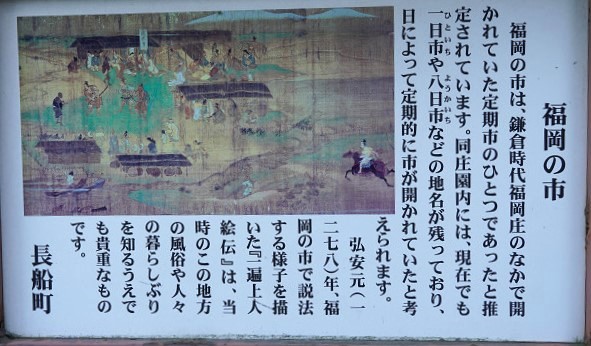 福岡の市
福岡の市は、鎌倉時代福岡庄のなかで開
かれていた定期市のひとつであったと推
定されています。同庄園内には、現在でも
一日市や八日市などの地名が残っており、
ひといち ようかいち
日によって定期的に市が開かれていたと考
えられます。
弘安元(一
二七八)年、福
岡の市で説法
する様子を描
いた『一遍上人
絵伝』は、当
時のこの地方
の風俗や人々
の暮らしぶり
を知るうえで
も貴重なもの
です。
長船町